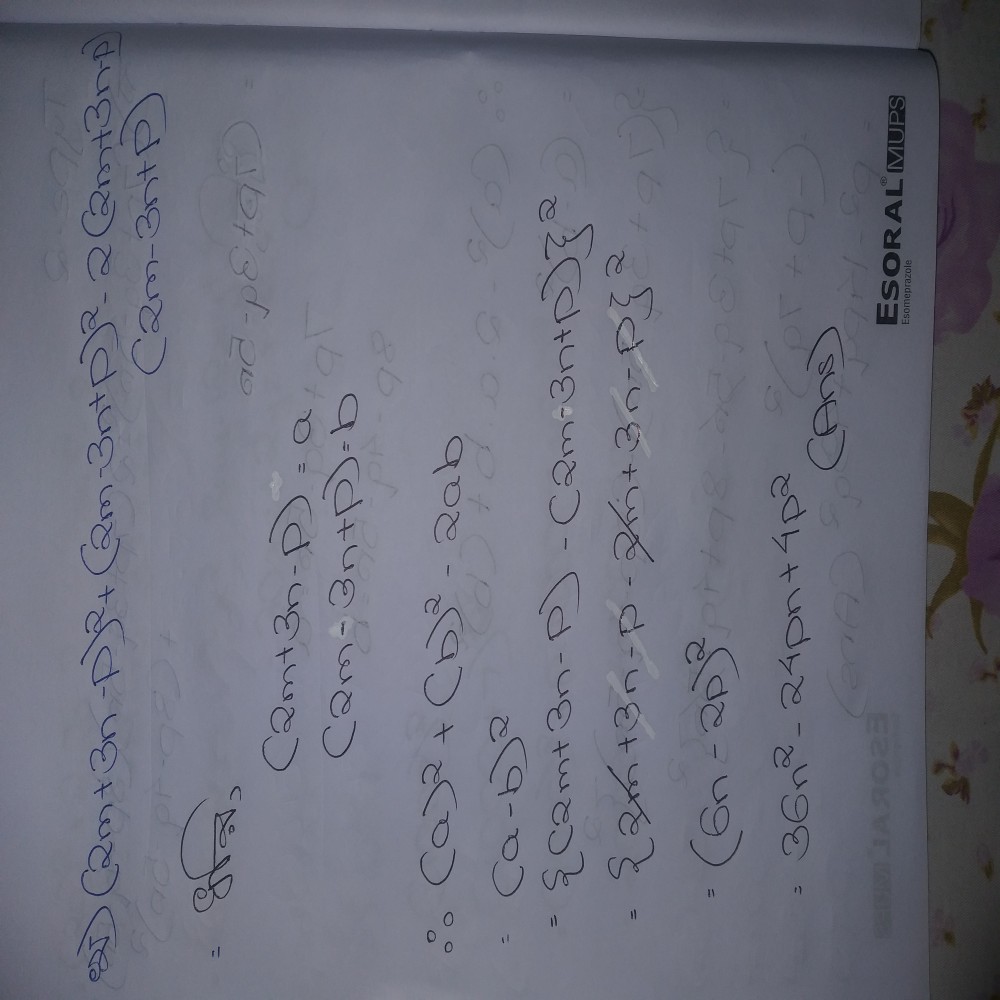 ঝ) (2m+3n-p)²+(2m-3n+p)²-2(2m+3n-p)
(2m-3n+p)
= ধরি,
(2m+3n-p)=a
(2m-3n+p)=b
∴ (a)²+(b)²-2ab
= (a-b)²
= {(2m+3n-p)-(2m-3n+p)}²
= {2m+3n-p-2m+3n-p}²
= (6n-2p)²
= 36n²-24pn+4p²
(Ans)
ESORAL® MUPS
Esomeprazole